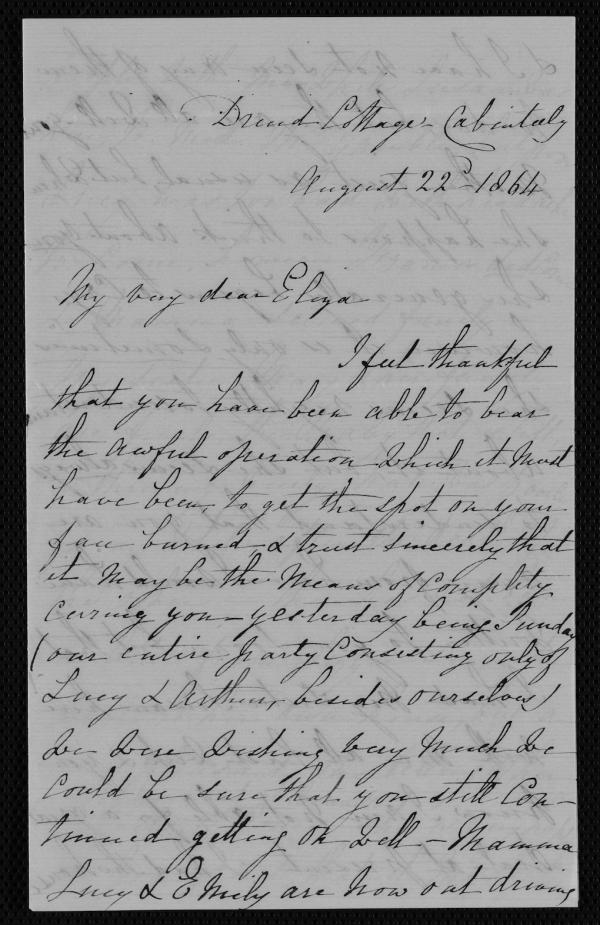 Druid Cottage - Cabinteely
August 22d 1864
My very dear Eliza
I feel thankful
that you have been able to bear
the awful operation which it must
have been, to get the spot on your
face burned & trust sincerely that
it may be the means of complety
curing you - yesterday being Sunday
(our entire party consisting only of
Lucy & Arthur, besides ourselves)
we were wishing very much we
could be sure that you still con-
tinued getting on well - Mamma
Lucy & Emily are now out driving